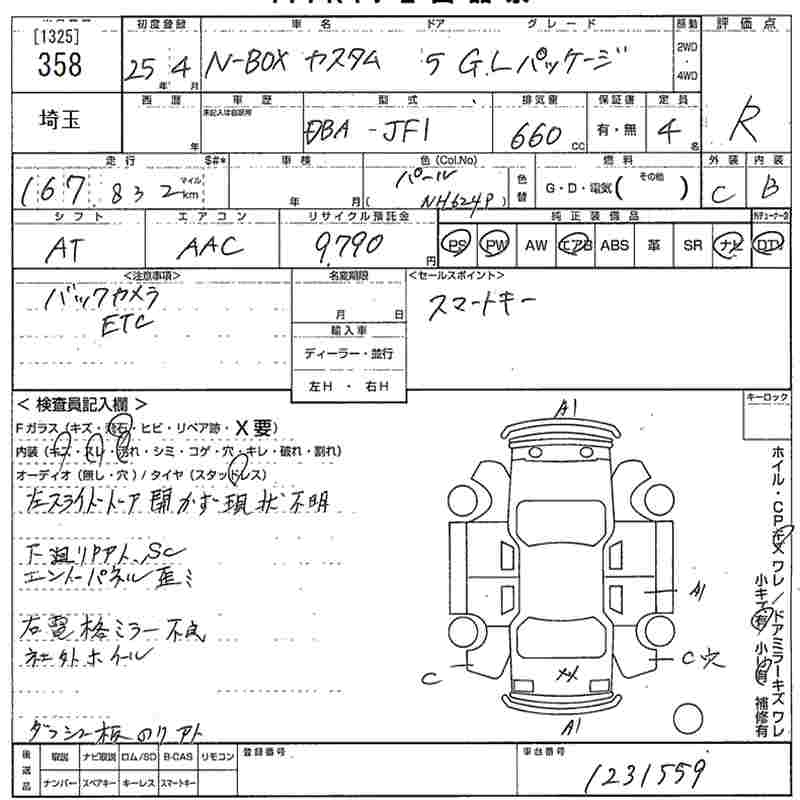 [1325]
358
埼玉
初度登録 車名 ドア グレード 駆動 評価点
25年4月 N-BOX カスタム 5 G.Lパッケージ 2WD・4WD
西暦 車歴 型式 排気量 保証書 定員
年 未記入は自家用 DBA-JF1 660cc 有・無 4名 R
走行 $#* 車検 色(Col.No) 燃料 その他 外装 内装
167,832 マイル km 年 月 パール (NH624P) 色替 G・D・電気( ) C B
シフト エアコン リサイクル預託金 純正装備品
AT AAC 9,790円 PS PW AW エアB ABS 革 SR ナビ
<注意事項> 名変期限 <セールスポイント>
バックカメラ 月 日 スマートキー
ETC 輸入車
ディーラー・並行
左H・右H
<検査員記入欄>
キーロック
Fガラス(キズ・飛石・ヒビ・リペア跡・X要)
内装(キズ・スレ・汚れ・シミ・コゲ・穴・キレ・破れ・割れ)
オーディオ(無し・穴)/タイヤ(スタッドレス)
左スライドドア開かず現状不明
下廻りサアト、SC
エンドーパネル歪ミ
右電格ミラー不良
社外ホイール
ダッシュ板のリアト
A1
A1
C
C穴
XX
A1
ホイル・CPキズ ワレ/ドアミラーキズ ワレ
小キズ有 小凹有 補修有
後送品 取説 ナビ取説 ロム/SD B-CAS リモコン
ナンバー スペアキー キーレス スマートキー
登録番号
車台番号
1231559